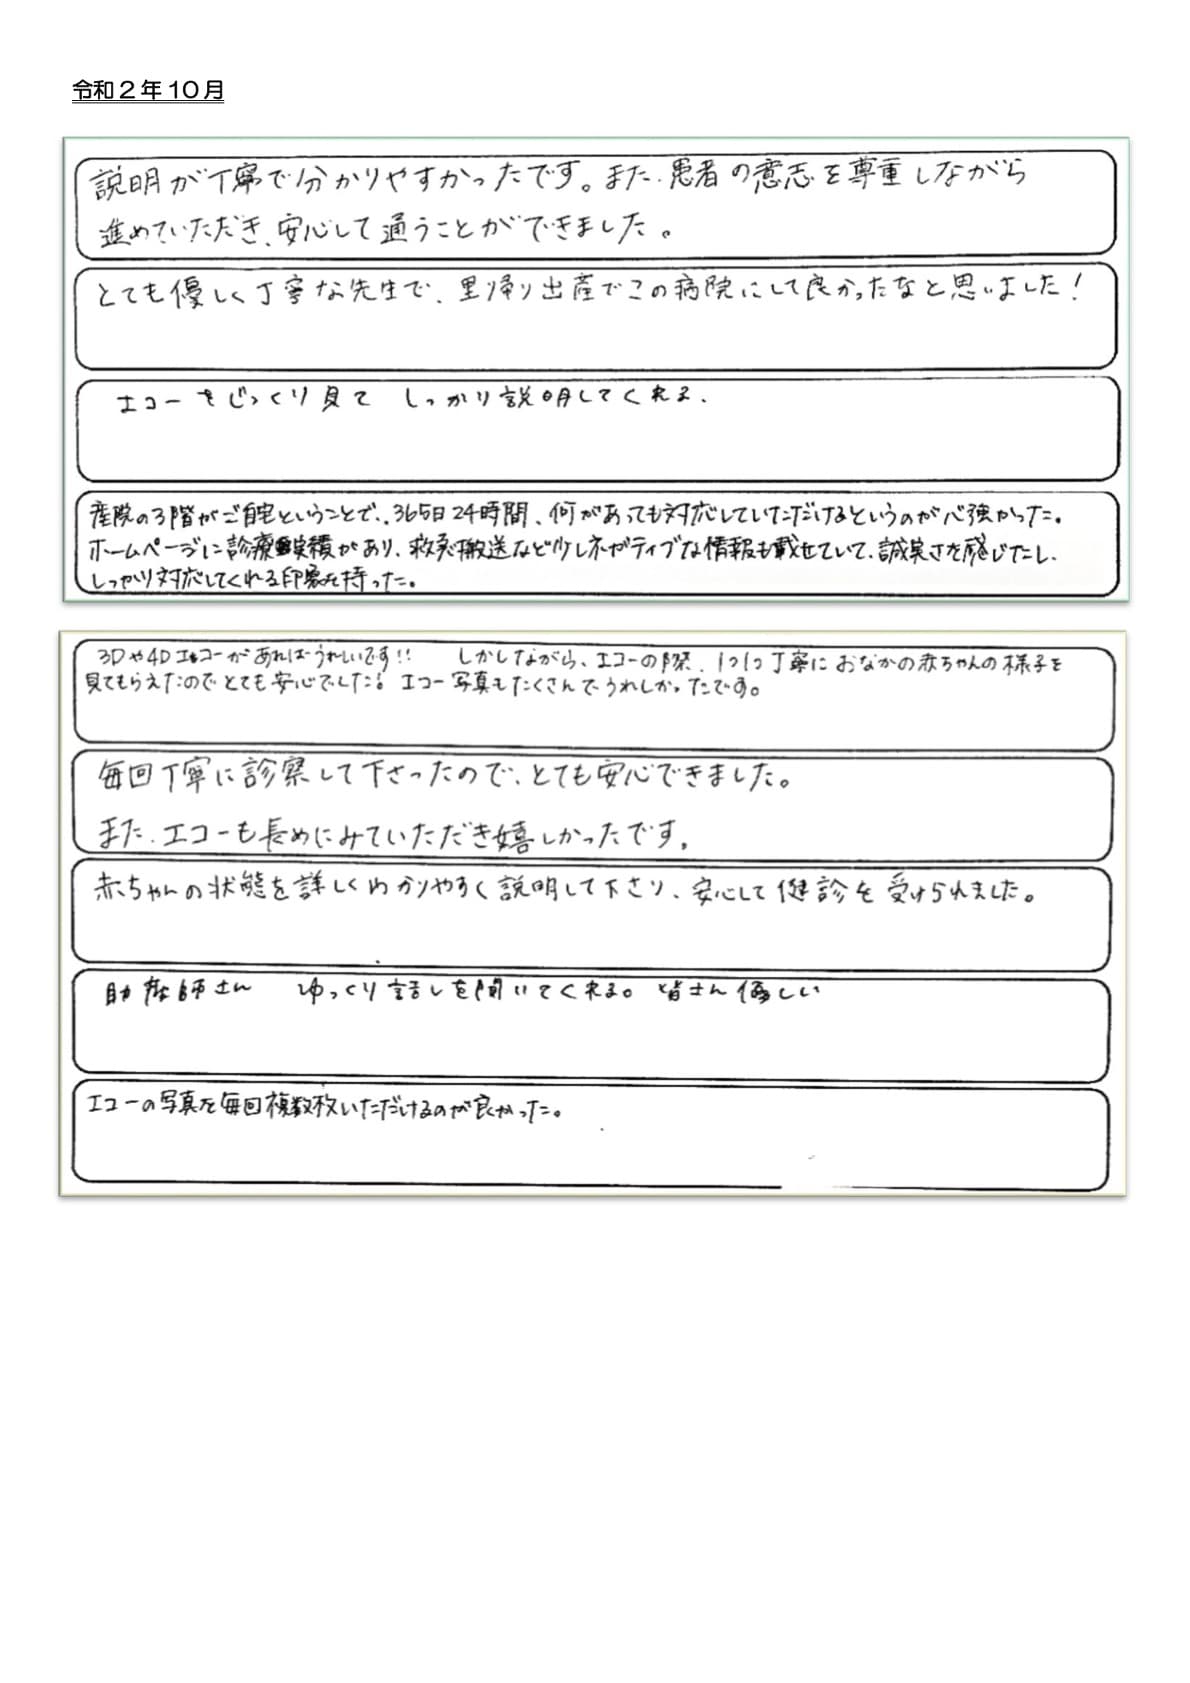 令和２年１０月
説明が丁寧で分かりやすかったです。また、患者の意志を尊重しながら
進めていただき、安心して通うことができました。
とても優しく丁寧な先生で、里帰り出産でこの病院にして良かったなと思いました！
エコーをじっくり見て しっかり説明してくれる．
産院の3階がご自宅ということで、365日24時間、何があっても対応していただけるというのが心強かった。
ホームページに診療実績があり、救急搬送など少しネガティブな情報も載せていて、誠実さを感じたし、
しっかり対応してくれる印象を持った。
3Dや4Dエコーがあればうれしいです!! しかしながら、エコーの際、1つ1つ丁寧におなかの赤ちゃんの様子を
見てもらえたのでとても安心でした！ エコー写真もたくさんでうれしかったです。
毎回丁寧に診察して下さったので、とても安心できました。
また、エコーも長めにみていただき嬉しかったです。
赤ちゃんの状態を詳しくわかりやすく説明して下さり、安心して健診を受けられました。
助産師さん ゆっくり話しを聞いてくれる。皆さん優しい
エコーの写真を毎回複数枚いただけるのが良かった。